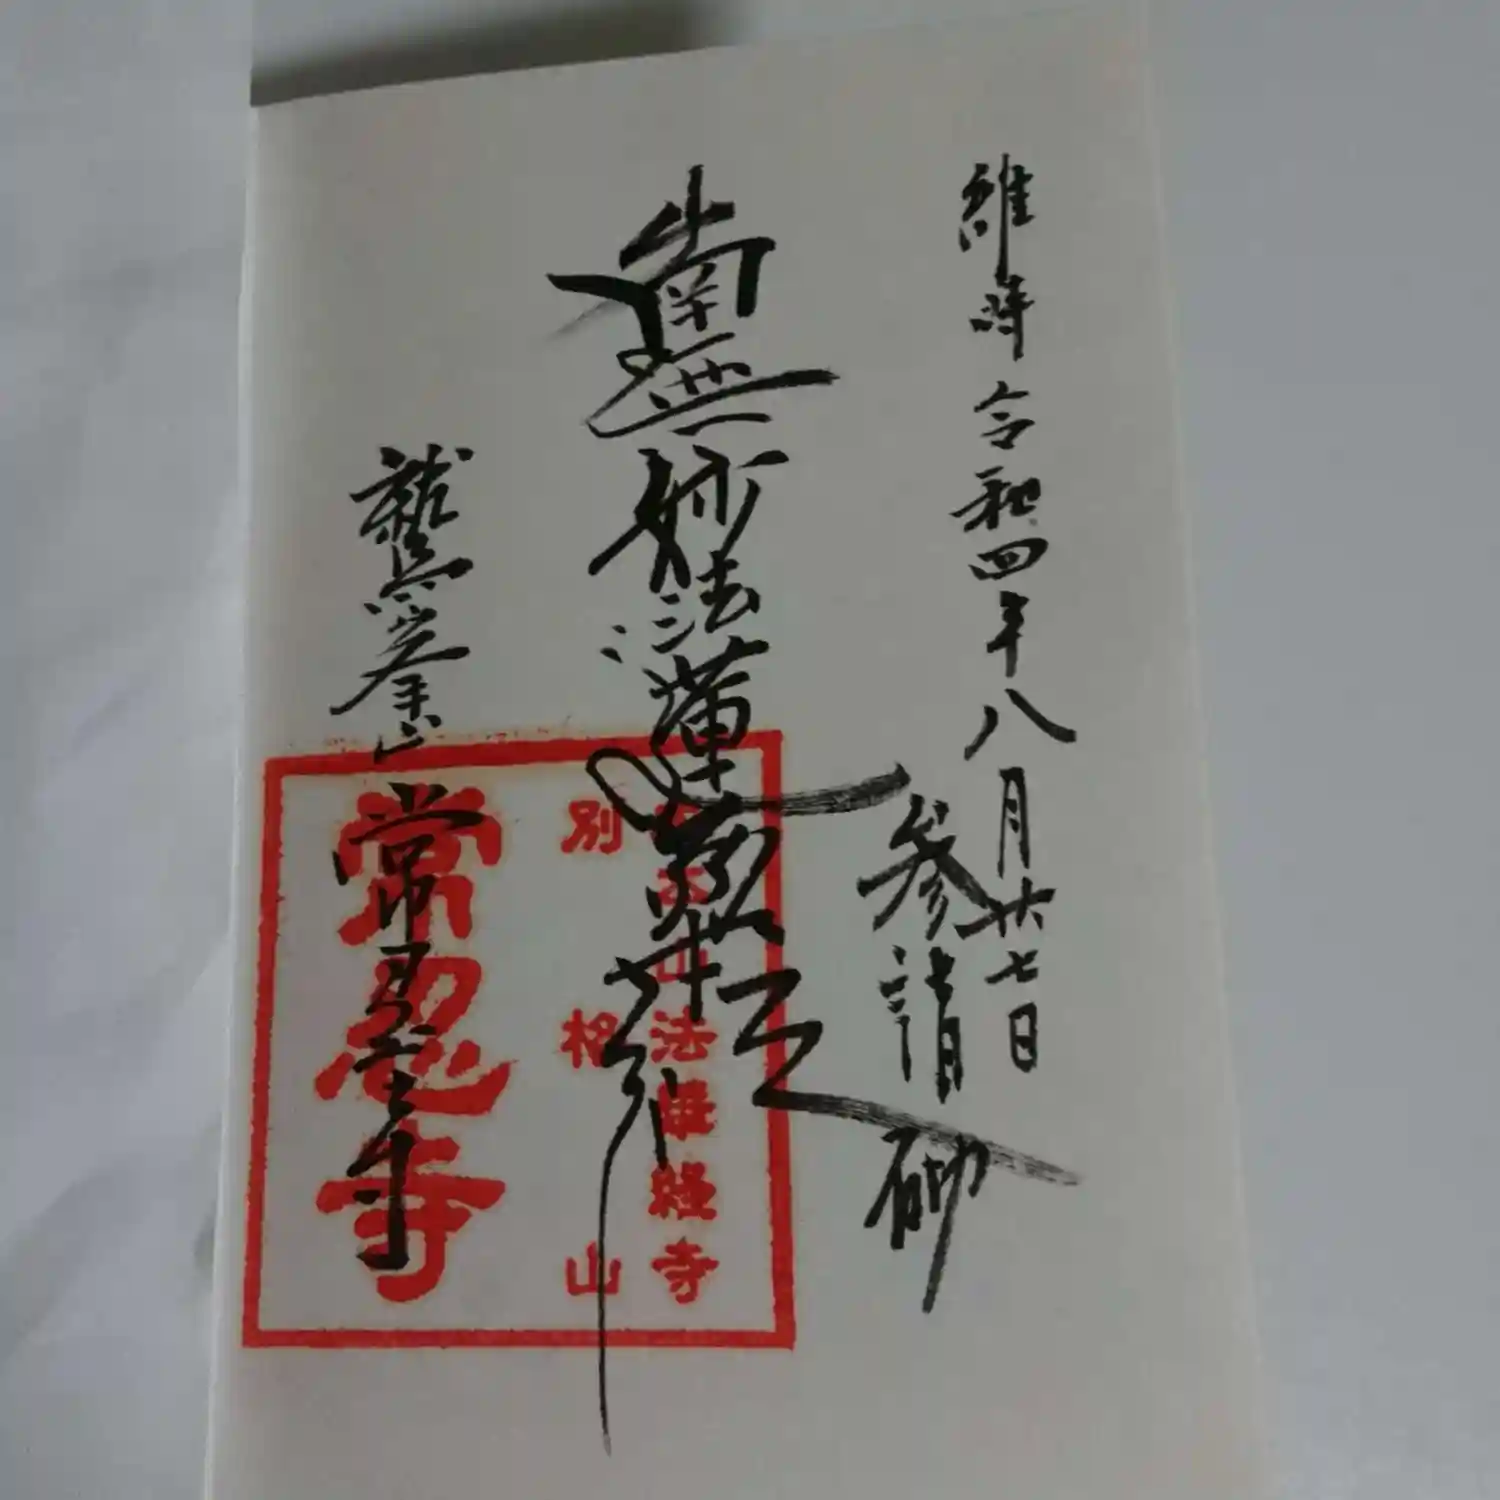 維時令和四年八月廿七日
参詣
砌
南無妙法蓮華経
鷲峯山
常忍寺
大本山法華経寺
別格山
常忍寺